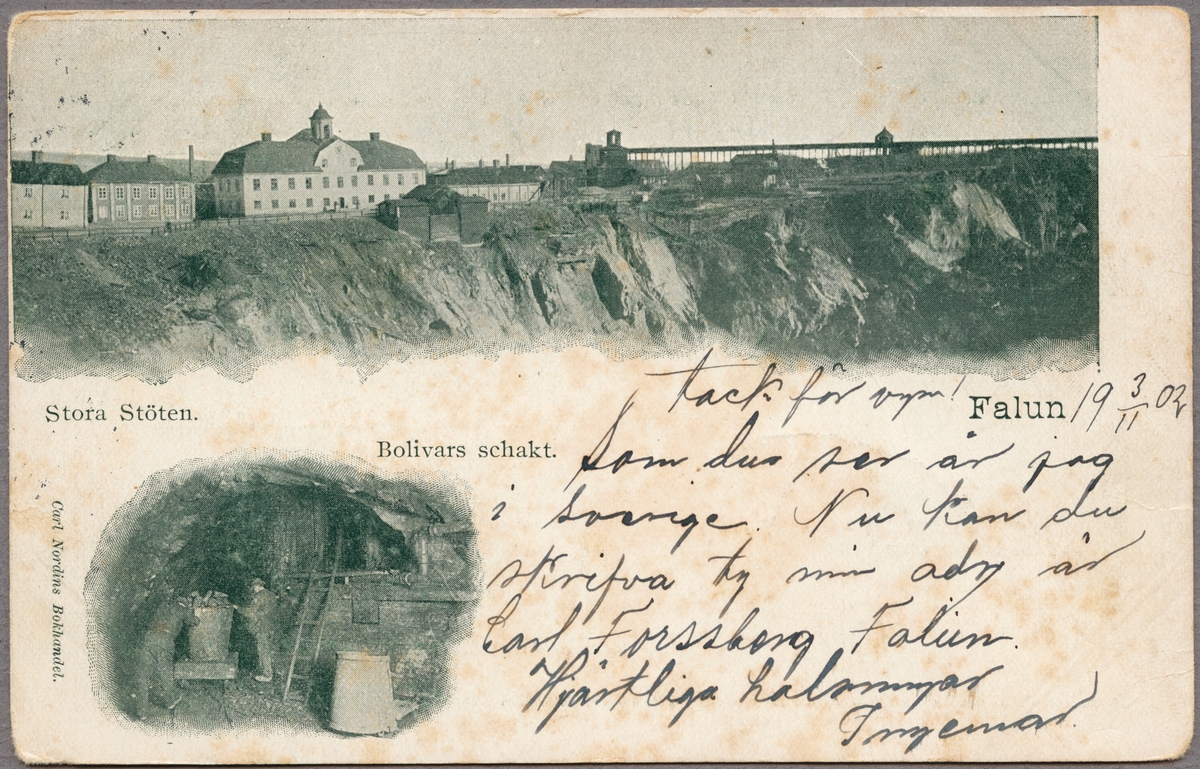 Stora Stöten.
Bolivars schakt.
Carl Nordins Bokhandel.
tack för vyn!
Falun 19 3/11 02
Som du ser är jag
i sverige. Nu kan du
skrifva ty min adr är
Carl Forssberg Falun.
Hjärtliga halsningar
Ingemar.